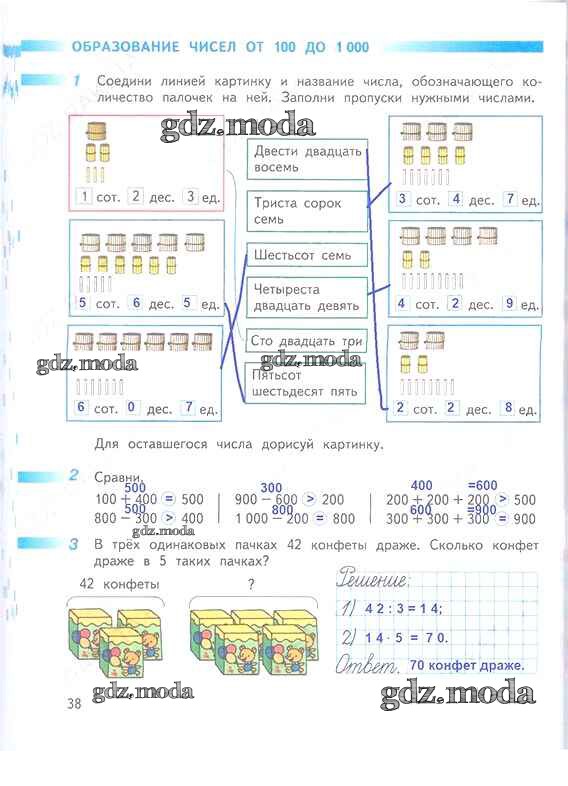 ОБРАЗОВАНИЕ ЧИСЕЛ ОТ 100 ДО 1 000
1 Соедини линией картинку и название числа, обозначающего ко-
личество палочек на ней. Заполни пропуски нужными числами.
gdz.moda
1 сот. 2 дес. 3 ед.
5 сот. 6 дес. 5 ед.
gdz.moda
6 сот. 0 дес. 7 ед.
Двести двадцать
восемь
Триста сорок
семь
Шестьсот семь
Четыреста
двадцать девять
Сто двадцать три
gdz.moda
Пятьсот
шестьдесят пять
3 сот. 4 дес. 7 ед.
4 сот. 2 дес. 9 ед.
gdz.moda
2 сот. 2 дес. 8 ед.
Для оставшегося числа дорисуй картинку.
2 Сравни.
500 300 400 =600
100 + 400 = 500 900 − 600 > 200 200 + 200 + 200 > 500
500 800 600 =900
800 − 300 > 400 1 000 − 200 = 800 300 + 300 + 300 = 900
gdz.moda
3 В трёх одинаковых пачках 42 конфеты драже. Сколько конфет
драже в 5 таких пачках?
42 конфеты ?
Решение:
1) 42 : 3 = 14;
2) 14 · 5 = 70.
Ответ. 70 конфет драже.
gdz.moda gdz.moda gdz.moda
38